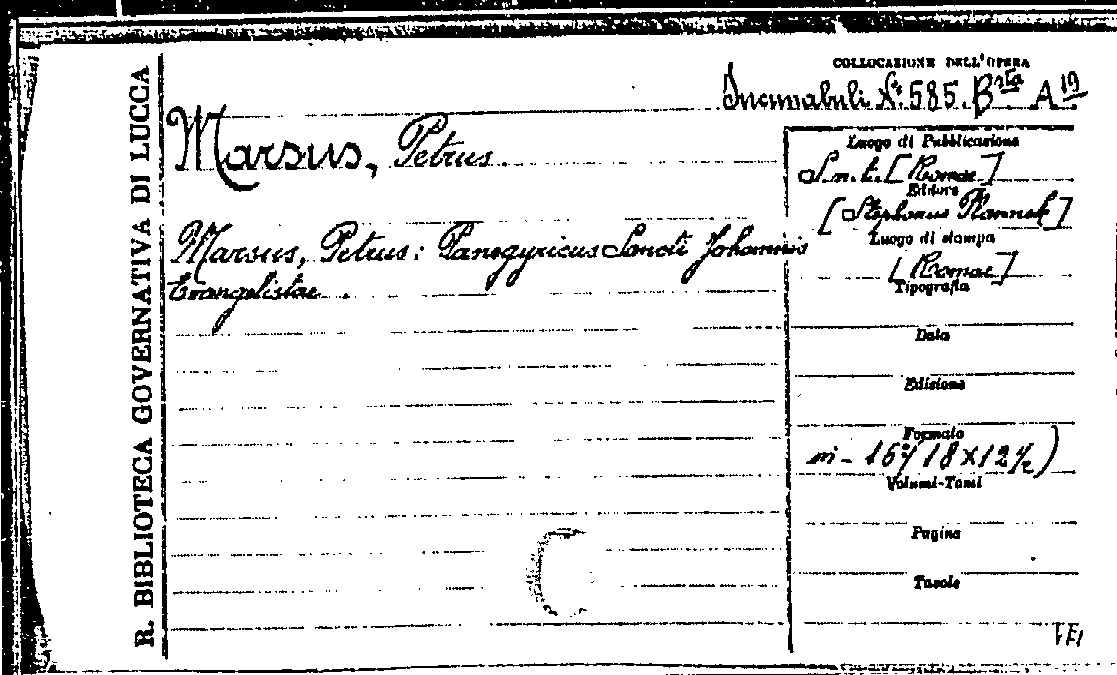 R. BIBLIOTECA GOVERNATIVA DI LUCCA
COLLOCAZIONE DELL'OPERA
Incunabuli N. 585. Bsta A19
Marsus, Petrus.
Marsus, Petrus: Panegyricus Sancti Johannis
Evangelistae.
Luogo di Pubblicazione
S.n.t. [Romae]
Editore
[Stephanus Plannck]
Luogo di stampa
[Romae]
Tipografia
Data
Edizione
Formato
in-16º (18x12½)
Volumi-Tomi
Pagine
Tavole